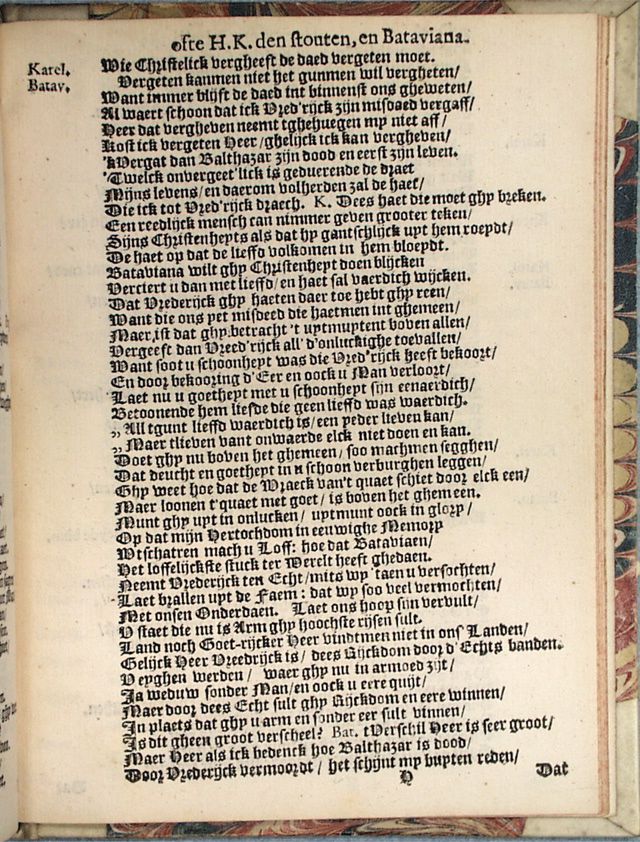 ofte H.K. den stouten, en Bataviana.
Karel. Wie Christelick vergheeft de daed vergeten moet.
Batav. Vergeten kanmen niet het gunmen wil vergheten/
Want immer blijft de daed int binnenst ons gheweten/
Al waert schoon dat ick Vred'rijck zijn misdaed vergaff/
Heer dat vergheven neemt tghehuegen my niet aff/
Kost ick vergeten Heer/ghelijck ick kan vergheven/
'kVergat dan Balthazar zijn dood en eerst zijn leven.
'Twelck onvergeet'lick is geduerende de draet
Mijns levens/ en daerom volherden zal de haet/
Die ick tot Vred'rijck draech. K. Dees haet die moet ghy breken.
Een reedlijck mensch can nimmer geven grooter teken/
Sijns Christenheyts als dat hy gantschlijck uyt hem roeydt/
De haet op dat de lieffd volkomen in hem bloeydt.
Bataviana wilt ghy Christenheyt doen blijcken
Verciert u dan met lieffd/ en haet sal vaerdich wijcken.
Dat Vrederijck ghy haeten daer toe hebt ghy reen/
Want die ons yet misdeed die haetmen int ghemeen/
Maer, ist dat ghy betracht 't uytmuytent boven allen/
Vergeeft dan Vreed'rijck all' d'onluckighe toevallen/
Want soot u schoonheyt was die Vred'rijck heeft bekoort/
En door bekooring d'Eer en oock u Man verloort/
Laet nu u goetheyt met u schoonheyt sijn eenaerdich/
Betoonende hem liefde die geen lieffd was waerdich.
„ All tgunt lieffd waerdich is/ een yeder lieven kan/
„ Maer tlieven vant onwaerde elck niet doen en kan.
Doet ghy nu boven het ghemeen/ soo machmen segghen/
Dat deucht en goetheyt in u schoon verburghen leggen/
Ghy weet hoe dat de Wraeck van't quaet schiet door elck een/
Maer loonen t'quaet met goet/ is boven het ghemeen.
Munt ghy uyt in onlucken/ uytmunt oock in glory/
Op dat mijn Hertochdom in eeuwighe Memory
Wtschatren mach u Loff: hoe dat Bataviaen/
Het loffelijckste stuck ter Werelt heeft ghedaen.
Neemt Vrederijck ten Echt/mits wy 'taen u versochten/
Laet brallen uyt de Faem: dat wy soo veel vermochten/
Met onsen Onderdaen. Laet ons hoop sijn vervult/
V staet die nu is Arm ghy hoochste rijsen sult.
Land noch Goet-rijcker Heer vindtmen niet in ons' Landen/
Gelijck Heer Vreedrijck is/ dees Rijckdom door d'Echts banden.
V eyghen werden/ waer ghy nu in armoed zijt/
Ja weduw sonder Man/ en oock u eere quijt/
Maer door dees Echt sult ghy Rijckdom en eere winnen/
In plaets dat ghy u arm en sonder eer sult vinnen/
Is dit gheen groot verscheel? Bat. tVerschil Heer is seer groot/
Maer Heer als ick bedenck hoe Balthazar is dood/
Door Vrederijck vermoordt/ het schijnt my buyten reden/
H Dat